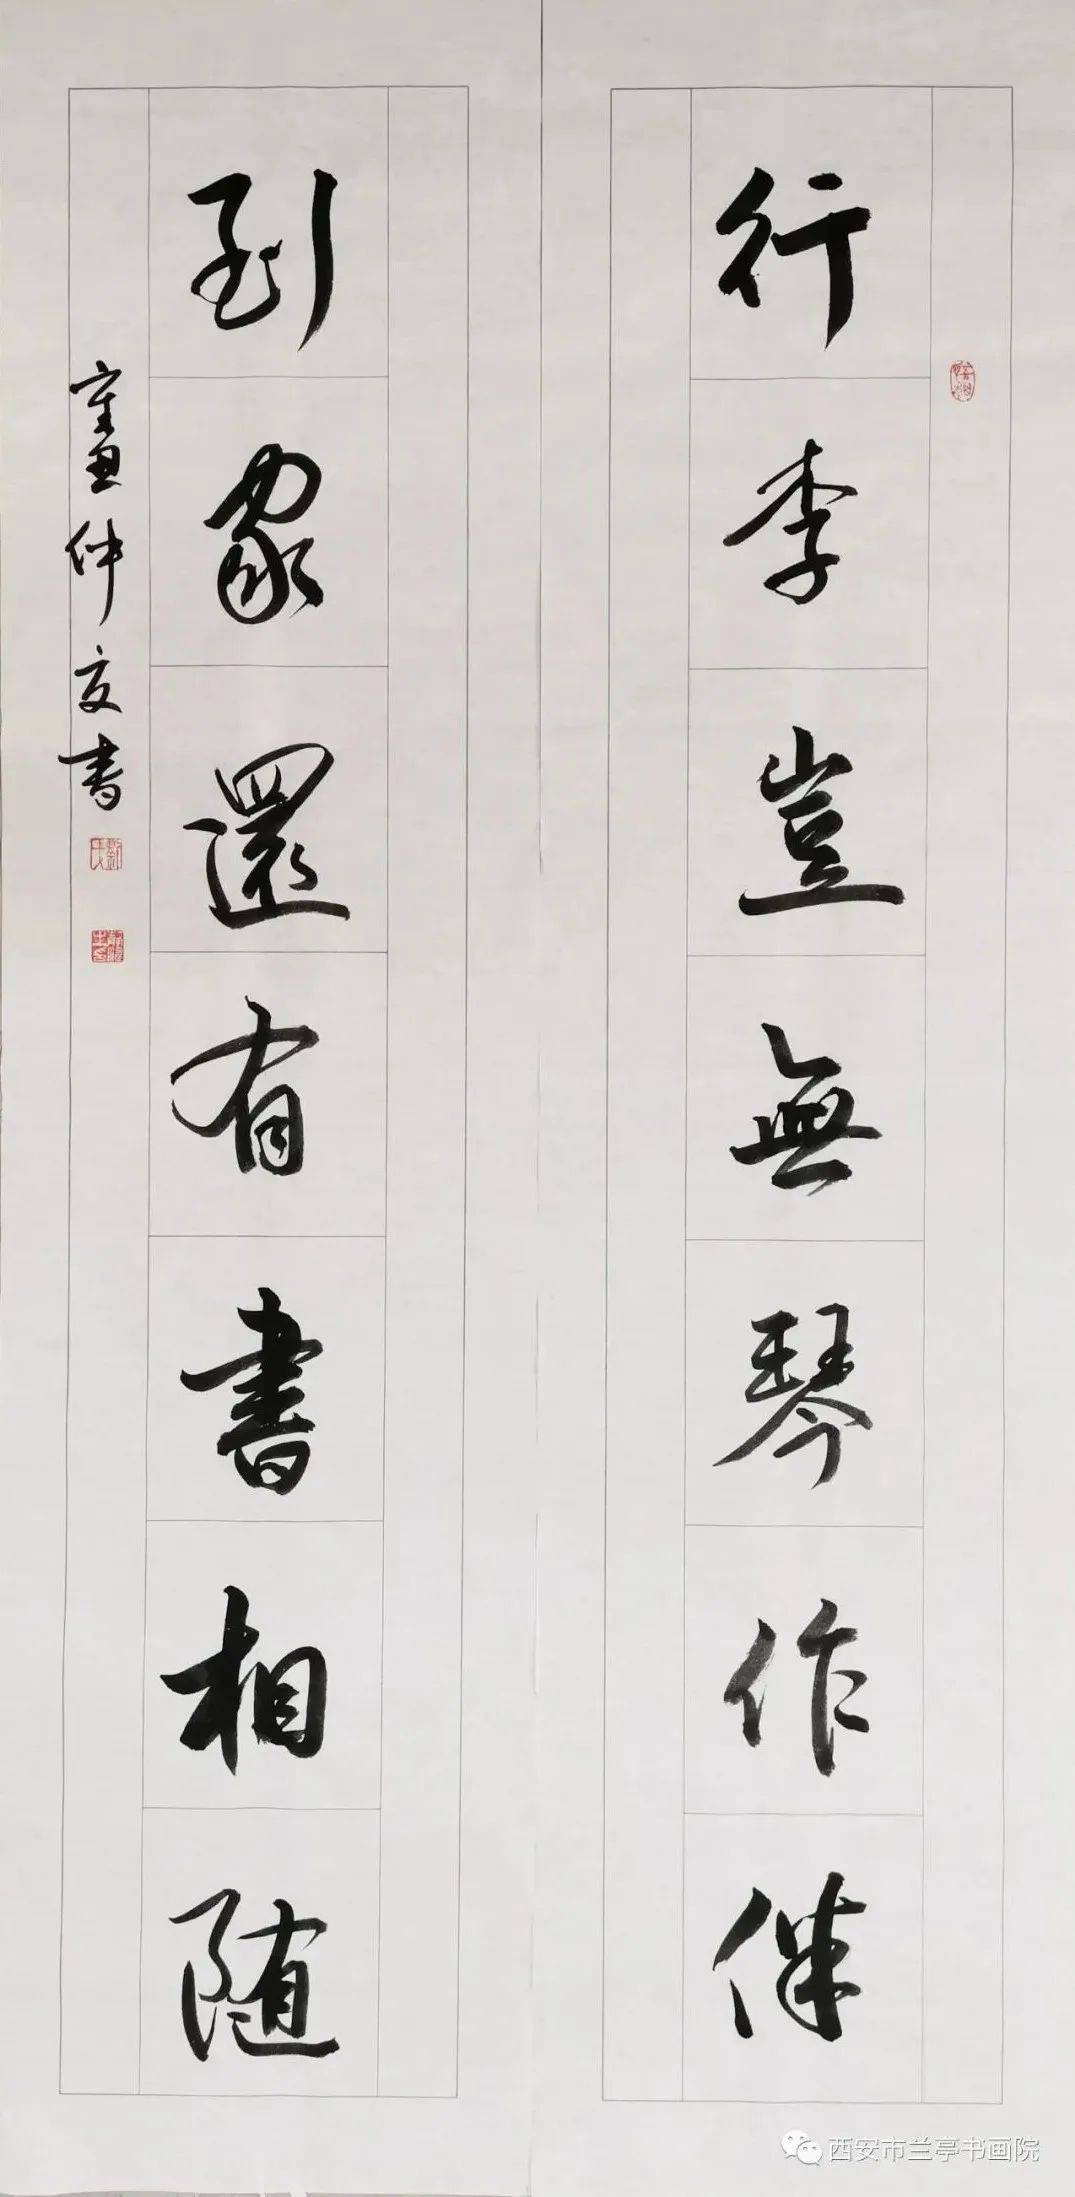 行李岂無琴作伴
到家還有書相随
辛丑仲夏書
西安市兰亭书画院